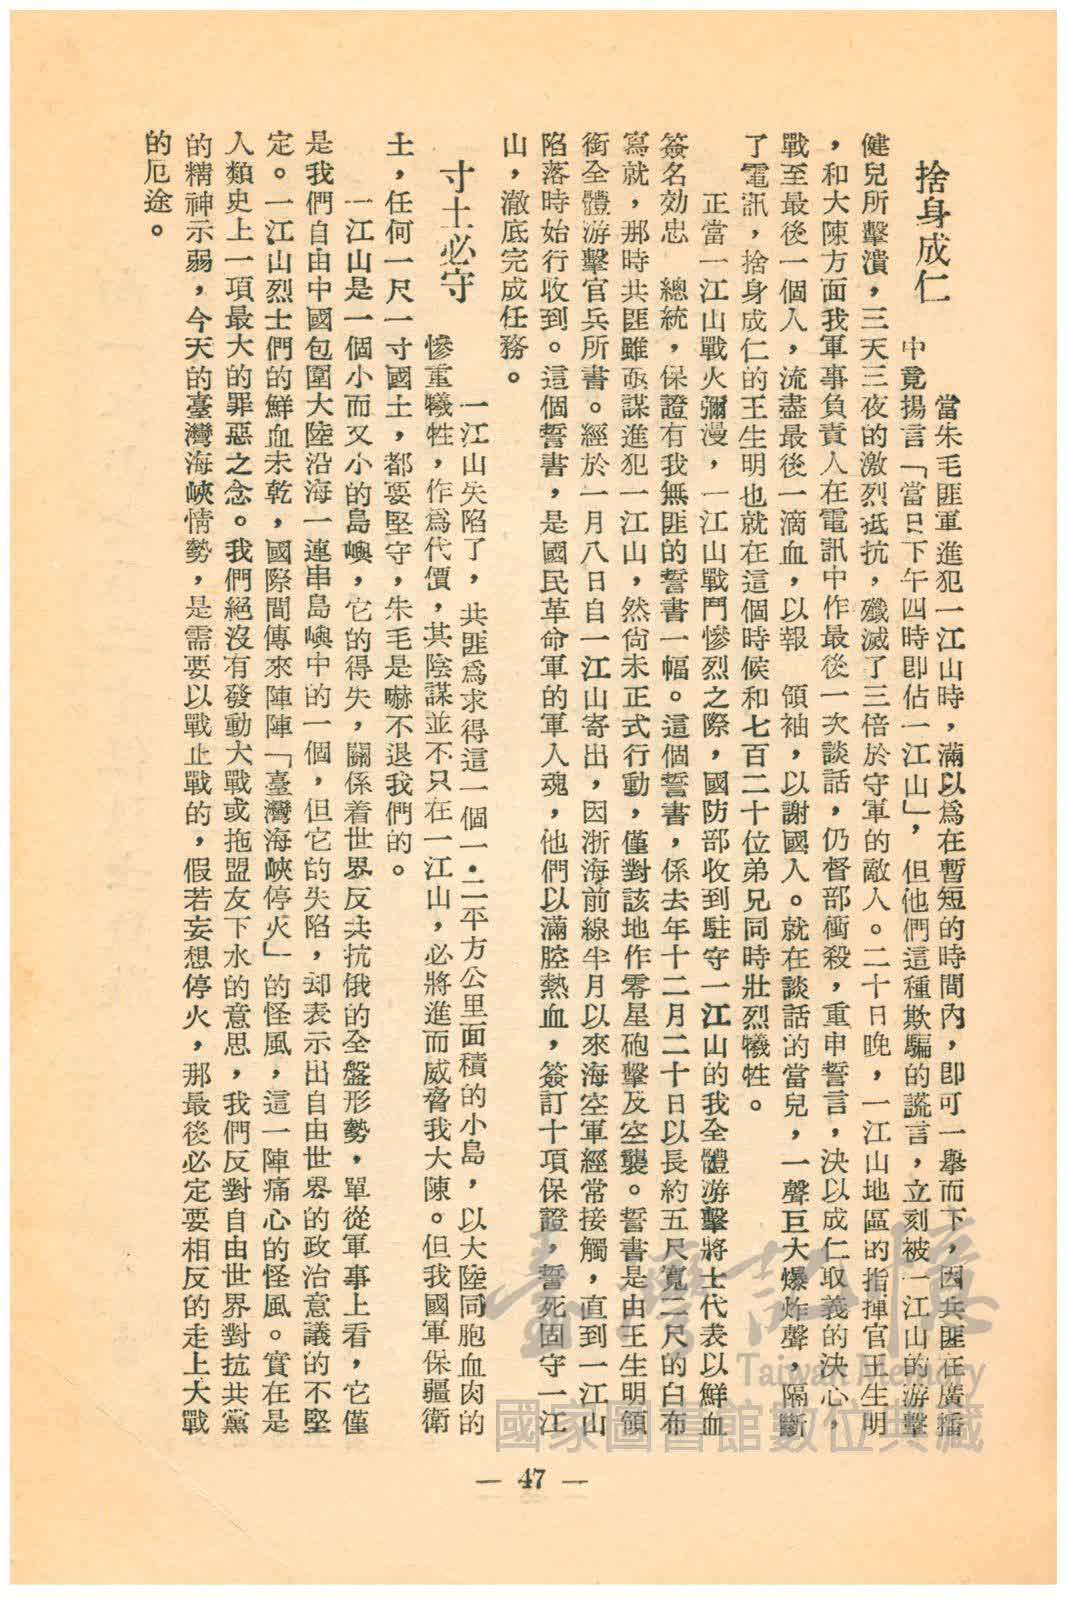 捨身成仁
當朱毛匪軍進犯一江山時，滿以爲在暫短的時間內，卽可一擧而下，因共匪在廣播
中竟揚言「當日下午四時卽佔一江山」，但他們這種欺騙的謊言，立刻被一江山的游擊
健兒所擊潰，三天三夜的激烈抵抗，殲滅了三倍於守軍的敵人。二十日晚，一江山地區的指揮官王生明
，和大陳方面我軍事負責人在電訊中作最後一次談話，仍督部衝殺，重申誓言，決以成仁取義的決心，
戰至最後一個人，流盡最後一滴血，以報　領袖，以謝國人。就在談話的當兒，一聲巨大爆炸聲，隔斷
了電訊，捨身成仁的王生明也就在這個時候和七百二十位弟兄同時壯烈犧牲。
正當一江山戰火彌漫，一江山戰鬥慘烈之際，國防部收到駐守一江山的我全體游擊將士代表以鮮血
簽名効忠　總統，保證有我無匪的誓書一幅。這個誓書，係去年十二月二十日以長約五尺寬二尺的白布
寫就，那時共匪雖敢謀進犯一江山，然尙未正式行動，僅對該地作零星砲擊及空襲。誓書是由王生明領
銜全體游擊官兵所書。經於一月八日自一江山寄出，因浙海前線半月以來海空軍經常接觸，直到一江山
陷落時始行收到。這個誓書，是國民革命軍的軍人魂，他們以滿腔熱血，簽訂十項保證，誓死固守一江
山，澈底完成任務。
寸土必守
一江山失陷了，共匪爲求得這一個一·二平方公里面積的小島，以大陸同胞血肉的
慘重犧牲，作爲代價，其陰謀並不只在一江山，必將進而威脅我大陳。但我國軍保疆衛
土，任何一尺一寸國土，都要堅守，朱毛是嚇不退我們的。
一江山是一個小而又小的島嶼，它的得失，關係着世界反共抗俄的全盤形勢，單從軍事上看，它僅
是我們自由中國包圍大陸沿海一連串島嶼中的一個，但它的失陷，却表示出自由世界的政治意議的不堅
定。一江山烈士們的鮮血未乾，國際間傳來陣陣「臺灣海峽停火」的怪風，這一陣痛心的怪風。實在是
人類史上一項最大的罪惡之念。我們絕沒有發動大戰或拖盟友下水的意思，我們反對自由世界對抗共黨
的精神示弱，今天的臺灣海峽情勢，是需要以戰止戰的，假若妄想停火，那最後必定要相反的走上大戰
的厄途。
— 47 —
臺灣記憶
Taiwan Memory
國家圖書館數位典藏